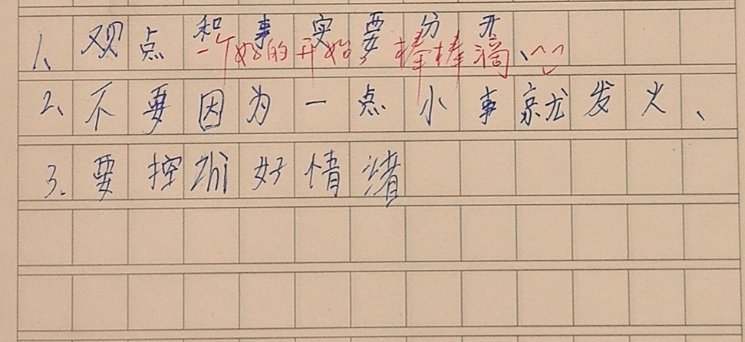 1、观点和事实要分开
一个好的开始，棒棒滴、
2、不要因为一点小事就发火、
3.要控制好情绪